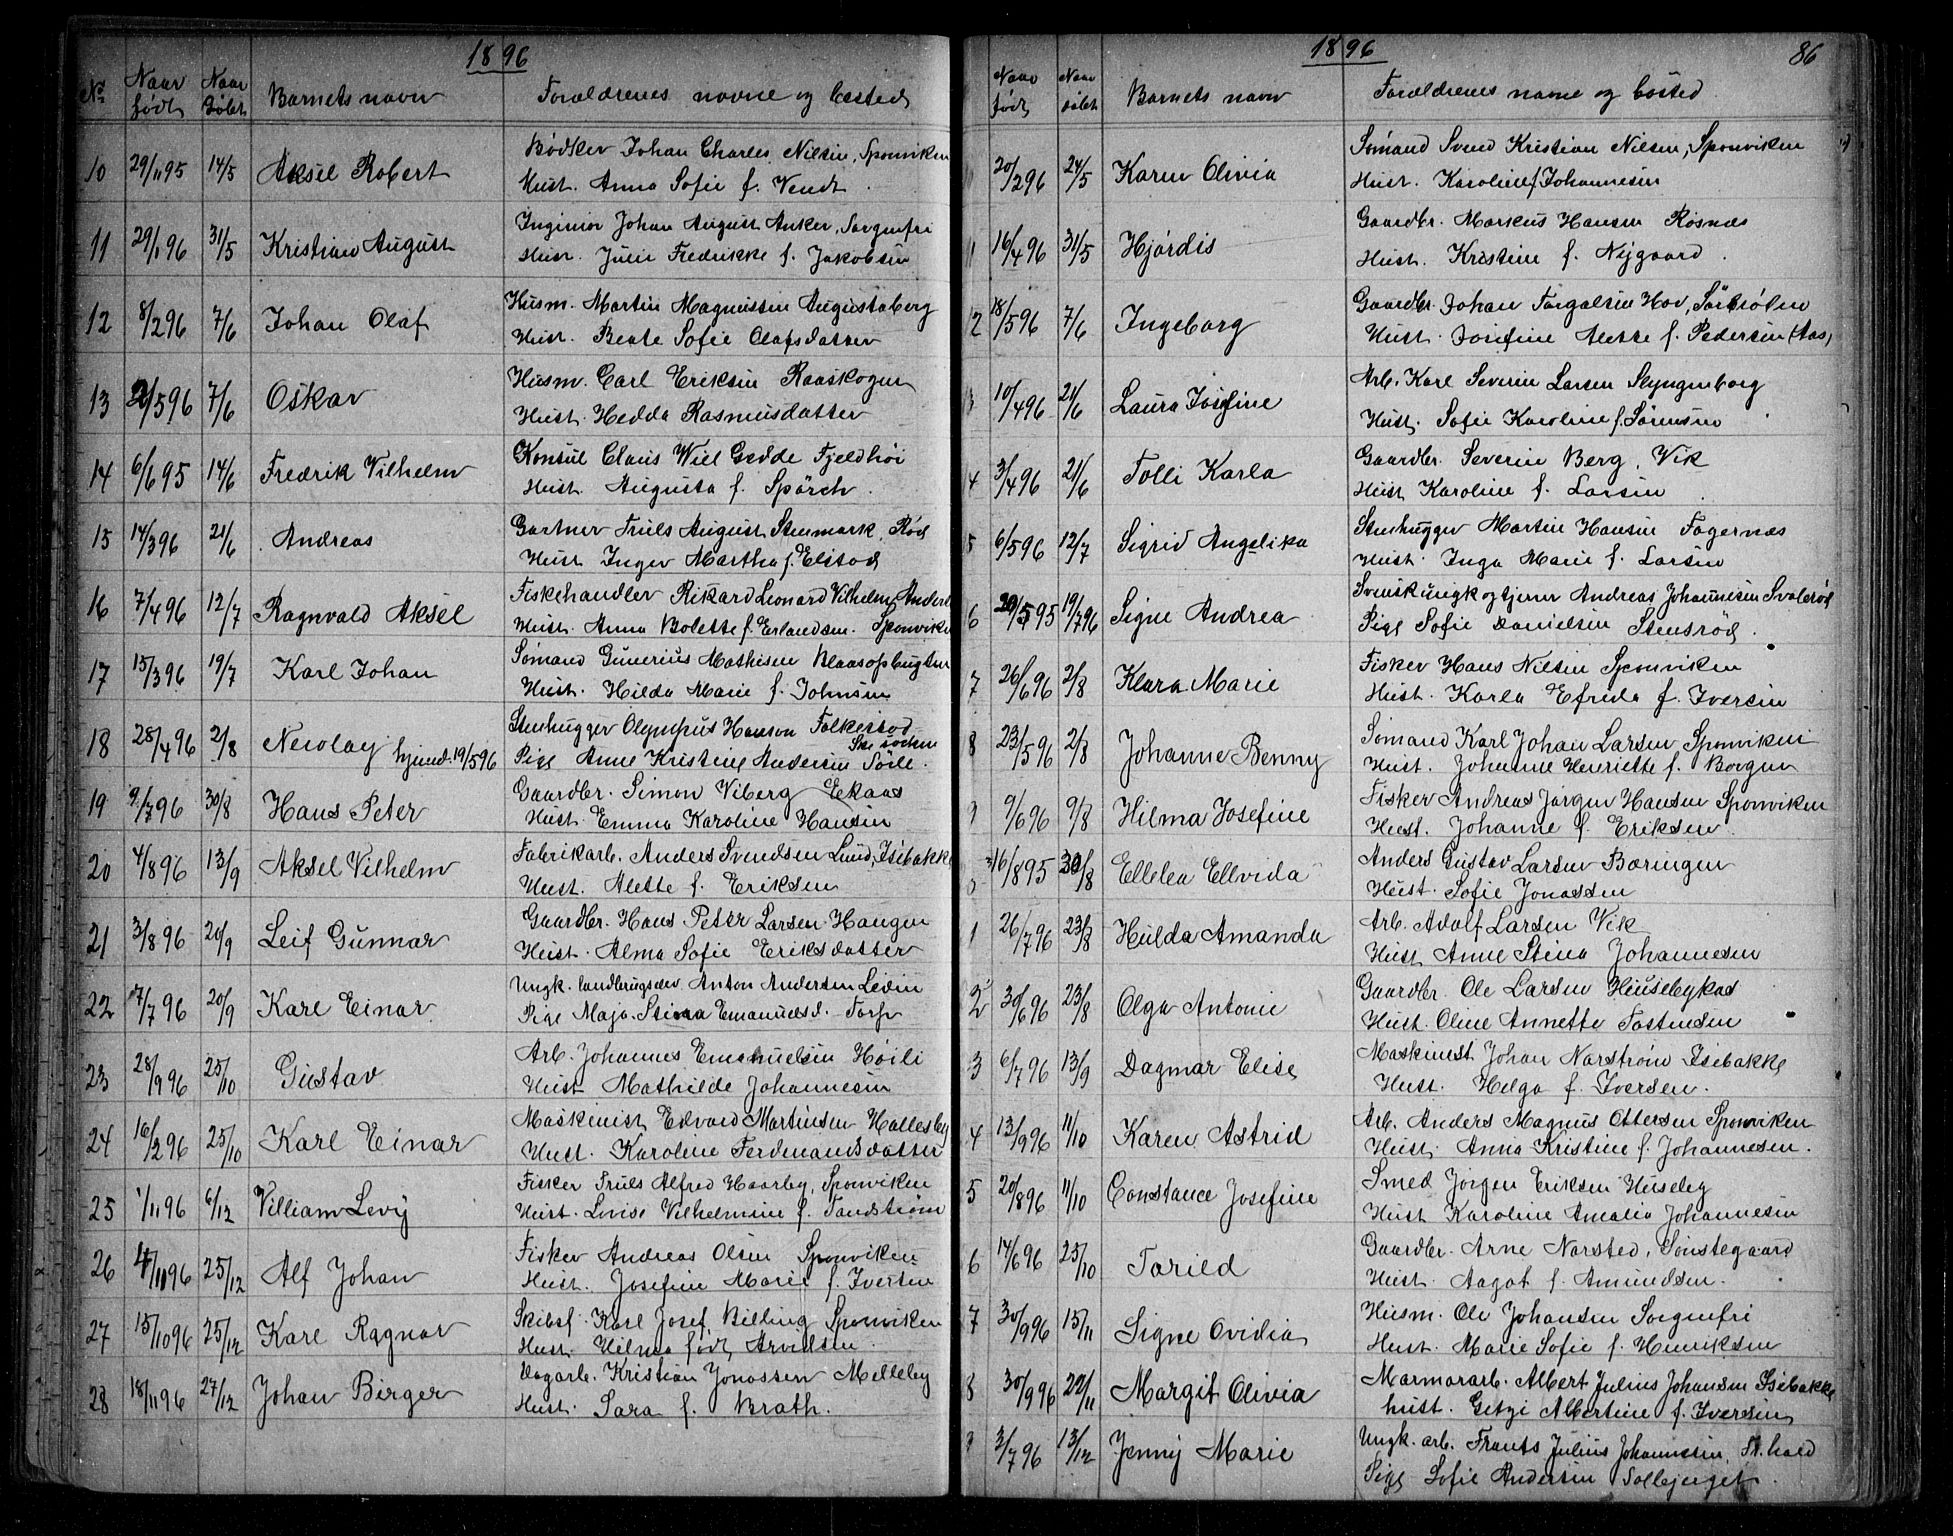 1896
No Naar født Naar døbt Barnets navn Forældrenes navne og bosted
10 29/11 95 14/5 Aksel Robert Bødker Johan Charles Nilsen, Sponviken
Hust. Anna Sofie f. Wendt.
11 29/1 96 31/5 Kristian August Ingeniør Johan August Anker, Sorgenfri
Hust. Julie Fredrikke f. Jakobsen
12 8/2 96 7/6 Johan Olaf Husm. Martin Magnussen Augustaborg
Hust. Beate Sofie Olafsdatter
13 2/5 96 7/6 Oskar Husm. Carl Eriksen Raaskogen
Hust. Hedda Rasmusdatter
14 6/6 95 14/6 Fredrik Vilhelm Konsul Claus Wiel Gedde Fjeldhøi
Hust. Augusta f. Spørch.
15 14/3 96 21/6 Andreas Gartner Truls August Stenmark, Rød
Hust Inger Martha f. Elstad
16 7/4 96 12/7 Ragnvald Aksel Fiskehandler Rikard Leonard Vilhelm
Hust. Anna Bolette f. Erlandsen. Sponviken
17 15/3 96 19/7 Karl Johan Sømand Gunerius Mathisen Blaasopbugten
Hust. Hilda Marie f. Johnsen
18 28/4 96 2/8 Nicolay hjemd. 19/5 96 Stenhugger Olympus Hanson
Pige Anne Kristine Andersen
19 9/7 96 30/8 Hans Peter Gaardbr. Simon Viberg Ekaas
Hust. Emma Karoline Hansen
20 4/8 96 13/9 Aksel Vilhelm Fabrikarb. Anders Svendsen Lund, Isebakke
Hust. Alette f. Eriksen
21 3/8 96 20/9 Leif Gunnar Gaardbr. Hans Peter Larsen Haugen
Hust. Alma Sofie Eriksdatter
22 7/7 96 20/9 Karl Einar Ungk. landbrugselev. Anton Andersen
Pige Maja Stina Emanuelsd. Torp
23 28/9 96 25/10 Gustav Arb. Johannes Emanuelsen Høili
Hust Mathilde Johannesen
24 16/2 96 25/10 Karl Einar Maskinist Edvard Martinsen Hallesby
Hust. Karoline Ferdinandsdatter
25 1/11 96 6/12 Villiam Levy Fisker Truls Alfred Haarby, Sponviken
Hust. Lovise Vilhelmine f. Sandstrøm
26 4/11 96 25/12 Alf Johan Fisker Andreas Olsen Sponviken
Hust. Josefine Marie f. Iversen
27 15/10 96 25/12 Karl Ragnar Skibsf. Karl Josef Billing Sponviken
Hust. Hilma født Arvidsen.
28 18/11 96 27/12 Johan Birger Dagarb. Kristian Jonassen Melleby
Hust. Sara f. Brath.
1896
86
Naar født Naar døbt Barnets navn Forældrenes navne og bosted
20/2 96 24/5 Karen Olivia Sømand Svend Kristian Nilsen, Sponviken
Hust. Karoline f. Johannesen
1 16/4 96 31/5 Hjørdis Gaardbr. Markus Hansen Røsnæs
Hust. Kristine f. Nygaard.
2 18/5 96 7/6 Ingeborg Gaardbr. Johan Torgalsen Hov, Sørbrøden
Hust. Josefine Alette f. Pedersen (Aas)
3 10/4 96 21/6 Laura Josefine Arb. Karl Severin Larsen Slyngenborg
Hust. Sofie Karoline f. Sørensen
4 3/4 96 21/6 Tolli Karla Gaardbr. Severin Berg, Vik
Hust Karoline f. Larsen
5 6/5 96 12/7 Sigrid Angelika Stenhugger Martin Hansen Fagernæs
Hust. Inga Marie f. Larsen
6 29/5 95 19/7 96 Signe Andrea Svensk ungk og tjener Andreas Johannesen Svalerød
Pige Sofie Danielsen Stensrød.
7 26/6 96 2/8 Klara Marie Fisker Hans Nilsen Sponviken
Hust. Karla Efrida f. Iversen
8 23/5 96 2/8 Johanne Benny Sømand Karl Johan Larsen Sponviken
Hust. Johanne Henriette f. Borgen
9 9/6 96 9/8 Hilma Josefine Fisker Andreas Jørgen Hansen Sponviken
Hust. Johanne f. Eriksen.
0 16/8 95 30/8 Ellelea Ellvida Anders Gustav Larsen Bæringen
Hust. Sofie Jonassen
1 26/7 96 23/8 Hulda Amanda Arb. Adolf Larsen Vik
Hust Anne Stina Johannesen
2 30/6 96 23/8 Olga Antonie Gaardbr. Ole Larsen Husebykas
Hust. Oline Annette Tostensen
3 6/7 96 13/9 Dagmar Elise Maskinist Johan Narstrøm Isebakke
Hust. Helga f. Iversen.
4 13/9 96 11/10 Karen Astrid Arb. Anders Magnus Ottersen Sponviken
Hust. Anna Kristine f. Johannesen.
5 20/8 96 11/10 Constance Josefine Smed Jørgen Eriksen Huseby
Hust Karoline Amalia Johannesen
6 14/6 96 25/10 Torild Gaardbr. Arne Narsted, Sønstegaard
Hust. Aagot f. Amundsen.
7 30/9 96 15/11 Signe Ovidia Husm. Ole Johansen Sorgenfri
Hust. Marie Sofie f. Henriksen
8 30/9 96 22/11 Margit Olivia Marmorarb. Albert Julius Johansen Isebakke
hust. Getzi Albertine f. Iversen
9 3/7 96 13/12 Jenny Marie Ungk. arb. Frants Julius Johannesen, Fr.hald
Pige Sofie Andersen